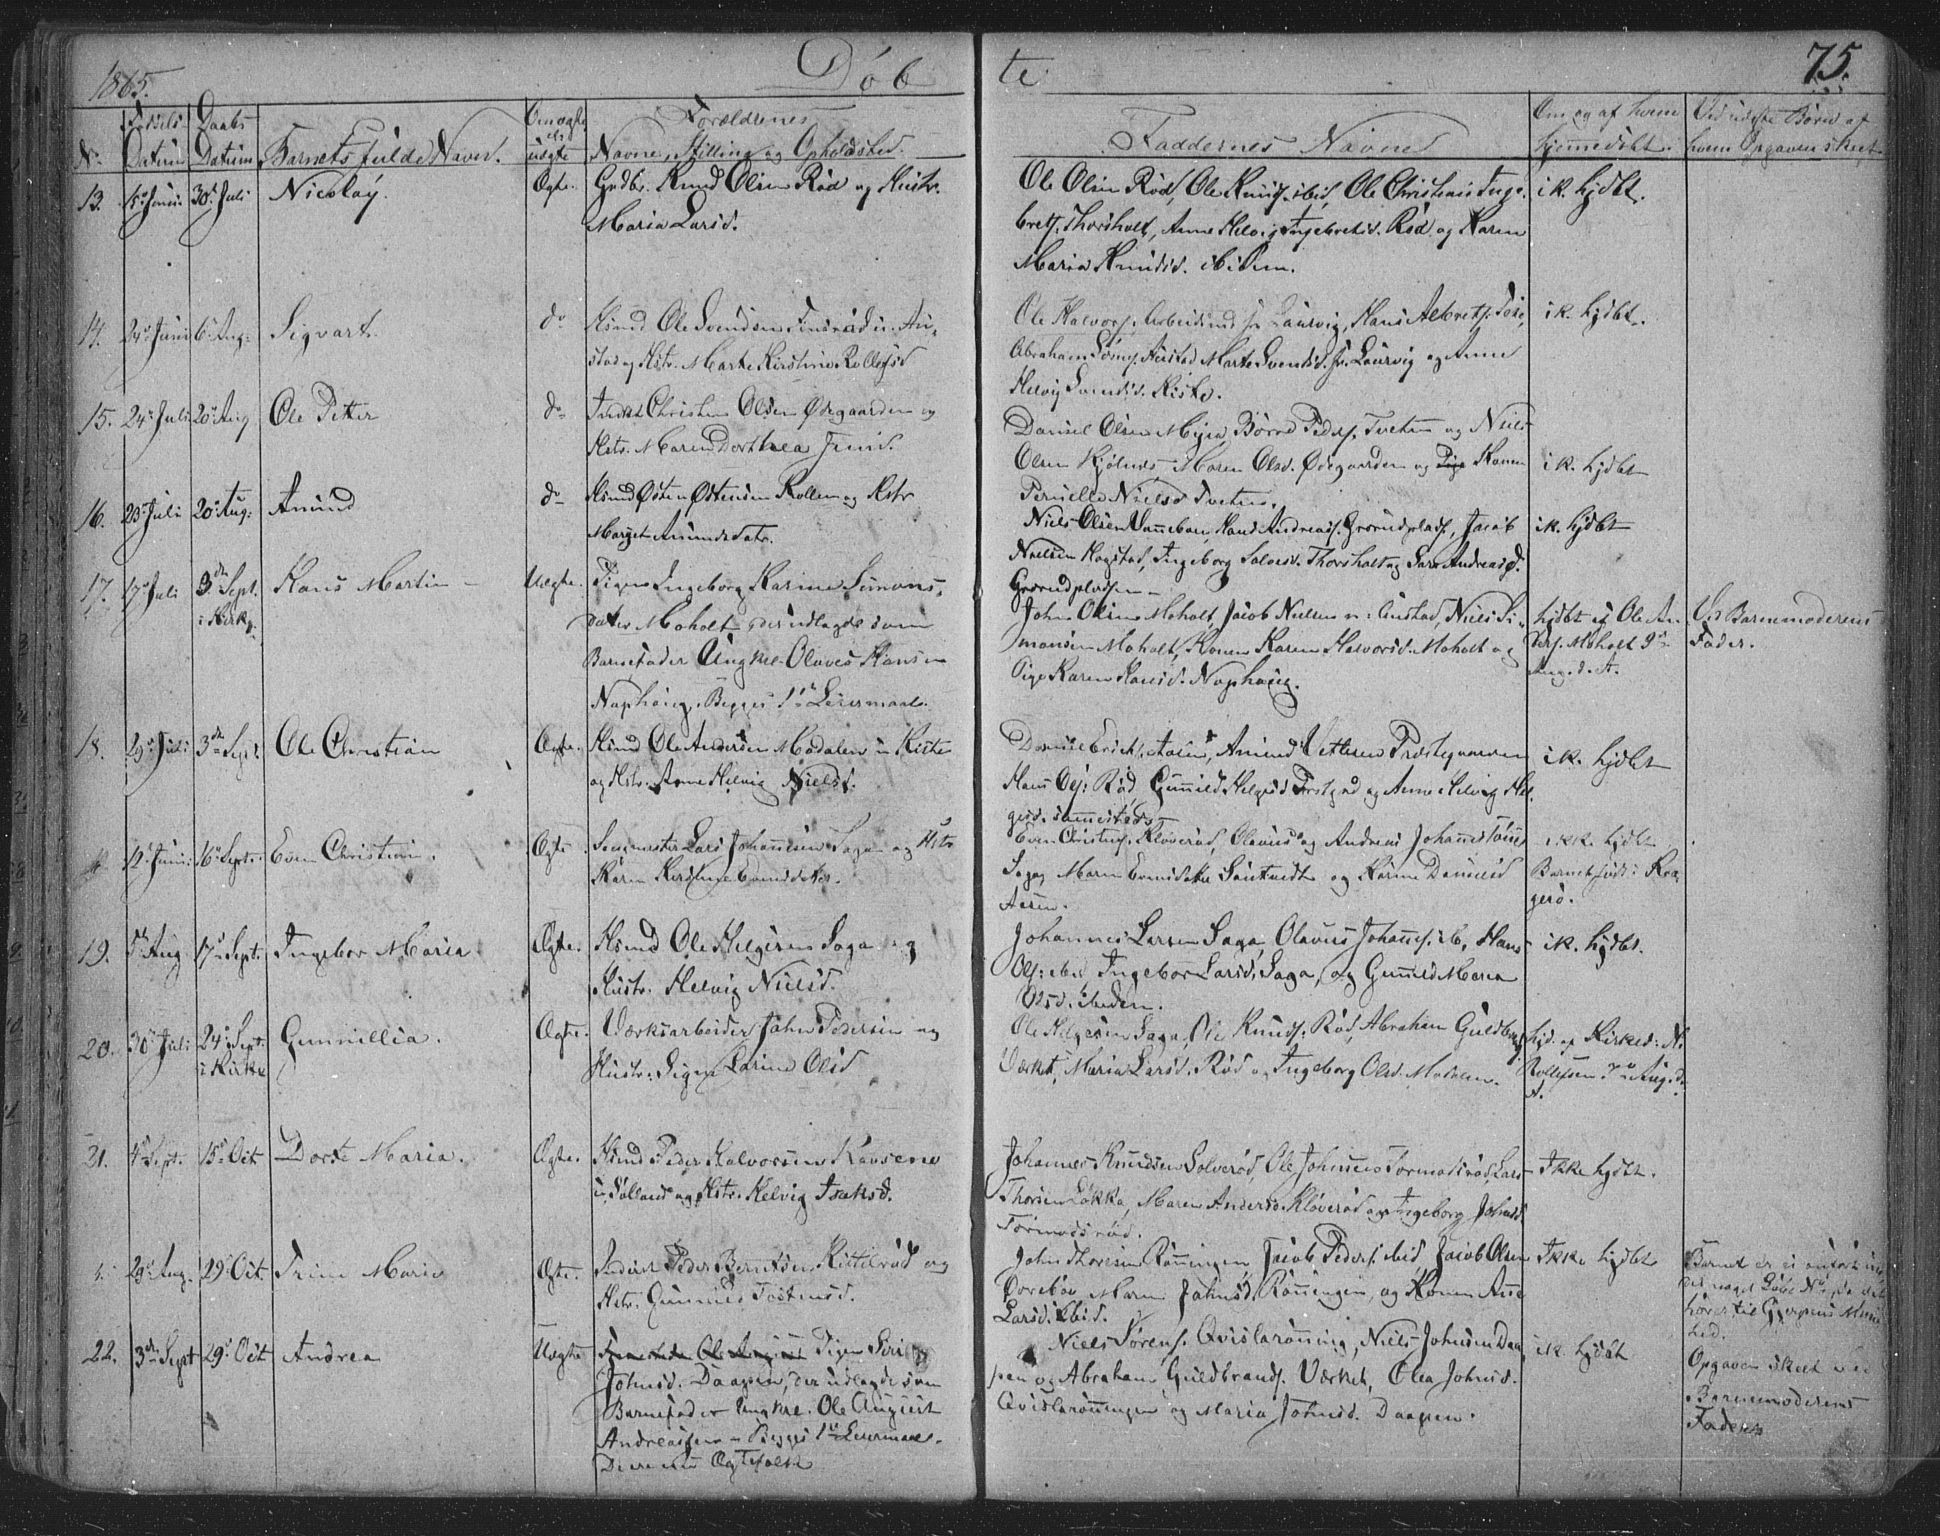 1865.
Døb
te
75.
No
Fødsels
Datum
Daabs
Datum
Barnets fulde Navn.
Om ægte
el.
uægte
Forældrenes
Navne, Stilling og Opholdssted.
Faddernes Navne
Om og af hvem
hjemmedøbt.
Ved uægte Børn af
hvem Opgaven skeet
13. 15de Juni 30te Juli Nicolay. Ægte. Grdbr. Knud Olsen Rød og Hustr.
Maria Larsd.
Ole Olsen Rød, Ole Knuds. ibid, Ole Christens Inge-
brets. Thorsholt, Anne Helvig Ingebretsd. Rød og Karen
Maria Knudsd. ibidem.
ik. hjdbt.
14. 24de Juni 6te Aug: Sigvart. do Hsmd Ole Svendsen
stad og Hstr. Marte Kirstine Rollefsd
Ole Halvors. Arbeidsmd fr. Laurvig, Hans Albrets.
Abraham Austad, Marte Svendsd. fr. Laurvig og Anne
Helvig Svendsd. Kiste.
ik. hjdbt.
15. 24de Juli 20de Aug Ole Petter do Christen Olsen Ødegaarden og
Hstr. Maren Dorthea Jensd.
Daniel Olsen Myra, Børre Peders. Tveten og Niels
Olsen Maren Olsd. Ødegaarden og Pige Konen
Pernille Nielsd Tveten.
ik. hjdbt
16. 23de Juli 20de Aug: Amund do Hsmd Østen Østensen Rollem og Hstr
Margit Amundsdatr.
Niels Olsen Hans Andreas. Grorudplads, Jacob
Nielsen Hogstad, Ingeborg Thorsholt og Sara Andreasd.
Grorudpladsen
ik. hjdbt
17. 17de Juli 3die Sept. Hans Martin Uægte. Pigen Ingeborg Karine Simons-
i Kirk.
datter Moholt, der udlagde som
Barnefader Ungkrl. Olaves Hansen
Naphoug, Begges 1ste Leiermaal.
John Olsen Moholt, Jacob Nielsen Austad, Niels Si-
monsen Moholt, Konen Karen Halvorsd. Moholt og
Pige Karen Hansd. Naphoug.
hjdbt af Ole An-
ders. Moholt 9de
Aug. d. A.
Ved Barnemoderens
Fader.
18. 29de Juli 3die Sept. Ole Christian Ægte. Hsmd Ole Andersen Modalen u. Kiste
og Hstr. Anne Helvig Nielsd.
Amund Vetlesen Præstegaarden
Hans Ols: Rød Gunnild Helgesd og Anne Helvig Hel-
gesd. sammesteds
ik. hjdbt
12te Juni 16de Sept. Even Christian. Ægte Lars Johannesen Saga og Hstr
Karen Kirstine Evensdatter.
Even Christens. Kloverød, Olavus og Andreas Johannessønner
Saga, Maren Evensdatter og Karine Danielsd
Aasen.
ikke hjdbt
Barnet født i Kra-
gerø.
19. 5te Aug 17de Sept. Ingebor Maria. Ægte. Hsmd Ole Helgesen Saga og
Hustr. Helvig Nielsd.
Johannes Larsen Saga, Olavus Johannes. ib, Hans
Ols: ibid Ingebor Larsd. Saga, og Gunnild Maria
Olsd. ibidem.
ik. hjdbt.
20. 30te Juli 24de Sept. Gunnillia. Ægte. Værksarbeider John Pedersen og
i Kirke
Hustr: Signe Larine Olsd
Ole Helgesen Saga, Ole Knuds: Rød, Abraham Guldbrands.
Værket, Maria Larsd. Rød og Ingeborg Olsd. Modalen.
hjd. af Kirkes: N.
Rollefsen 7de Aug. d.
A.
21. 4de Sept. 15de Oct Dorte Maria. Ægte. Hsmd Peder Halvorsen
u. Sølland og Hstr. Helvig Isaksd.
Johannes Knudsen Solverød, Ole Johannes Tormodsrød, Lars
Thorsen Løkka, Maren Andersd. Kløverød og Ingeborg Johnsd.
Tormodsrød.
Ikke hjdbt.
29de Aug. 29de Oct. Trine Marie Ægte. Peder Berntsen Kittilrød og
Hstr. Gunnild Tostensd.
John Thoresen Rønningen, Jacob Peders. ibid, Jacob Olsen
Maren Johnsd. Rønningen, og Konen Anne
Larsd. ibid.
Ikke hjdbt
Barnet er ei anført un-
der noget Løbe No, da det
hører til Gjerpens Menig-
hed.
22. 3die Sept 29de Oct Andrea Uægte Pigen Siri
Johnsd. Daapen, der udlagde som
Barnefader Ungkrl. Ole August
Andreassen – Begges 1ste Leiermaal.
De ere nu Ægtefolk
Niels Sørens. Qvislarønning, Niels Johnsen Daa-
pen og Abraham Guldbrands. Værket, Olea Johnsd.
Qvislarønningen og Maria Johnsd. Daapen.
ik. hjdbt
Opgaven skeet ved
Barnemoderens
Fader